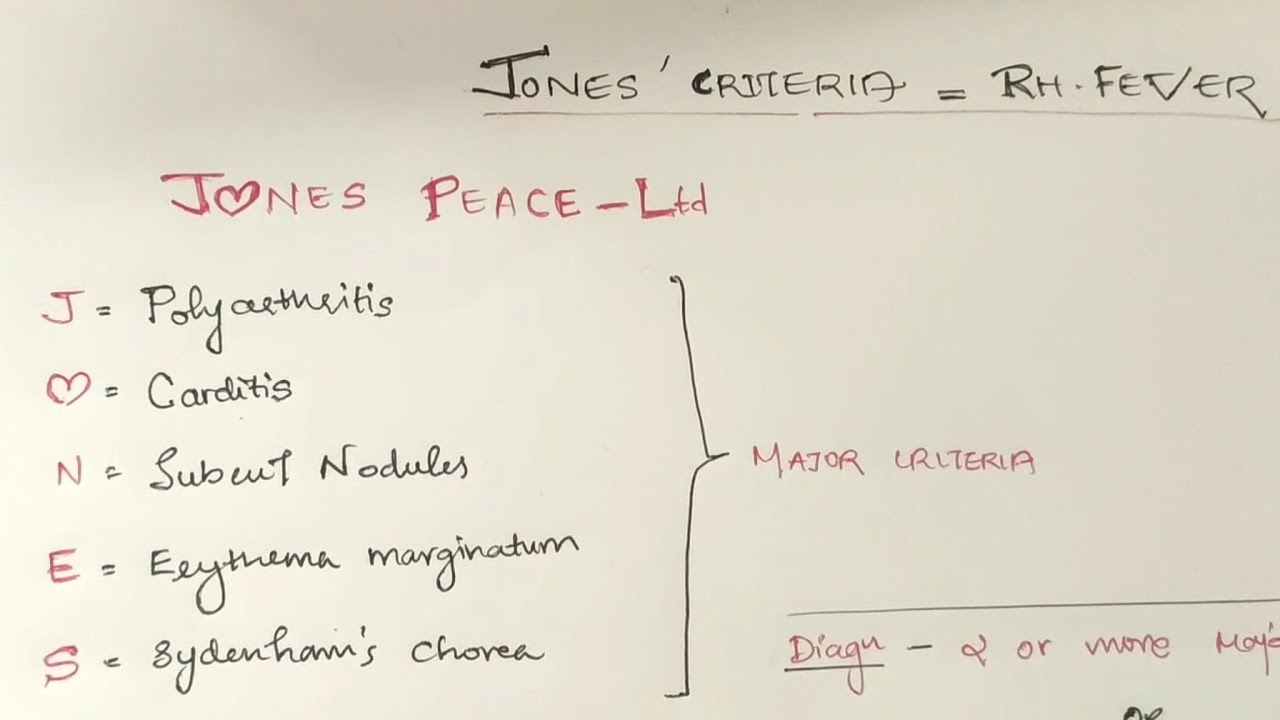 JONES' CRITERIA = RH. FEVER
J♡NES PEACE - Ltd
J = Polyarthritis
♡ = Carditis
N = Subcut Nodules
E = Erythema marginatum
S = Sydenham's chorea
MAJOR CRITERIA
Diagn - 2 or more Majo
OR